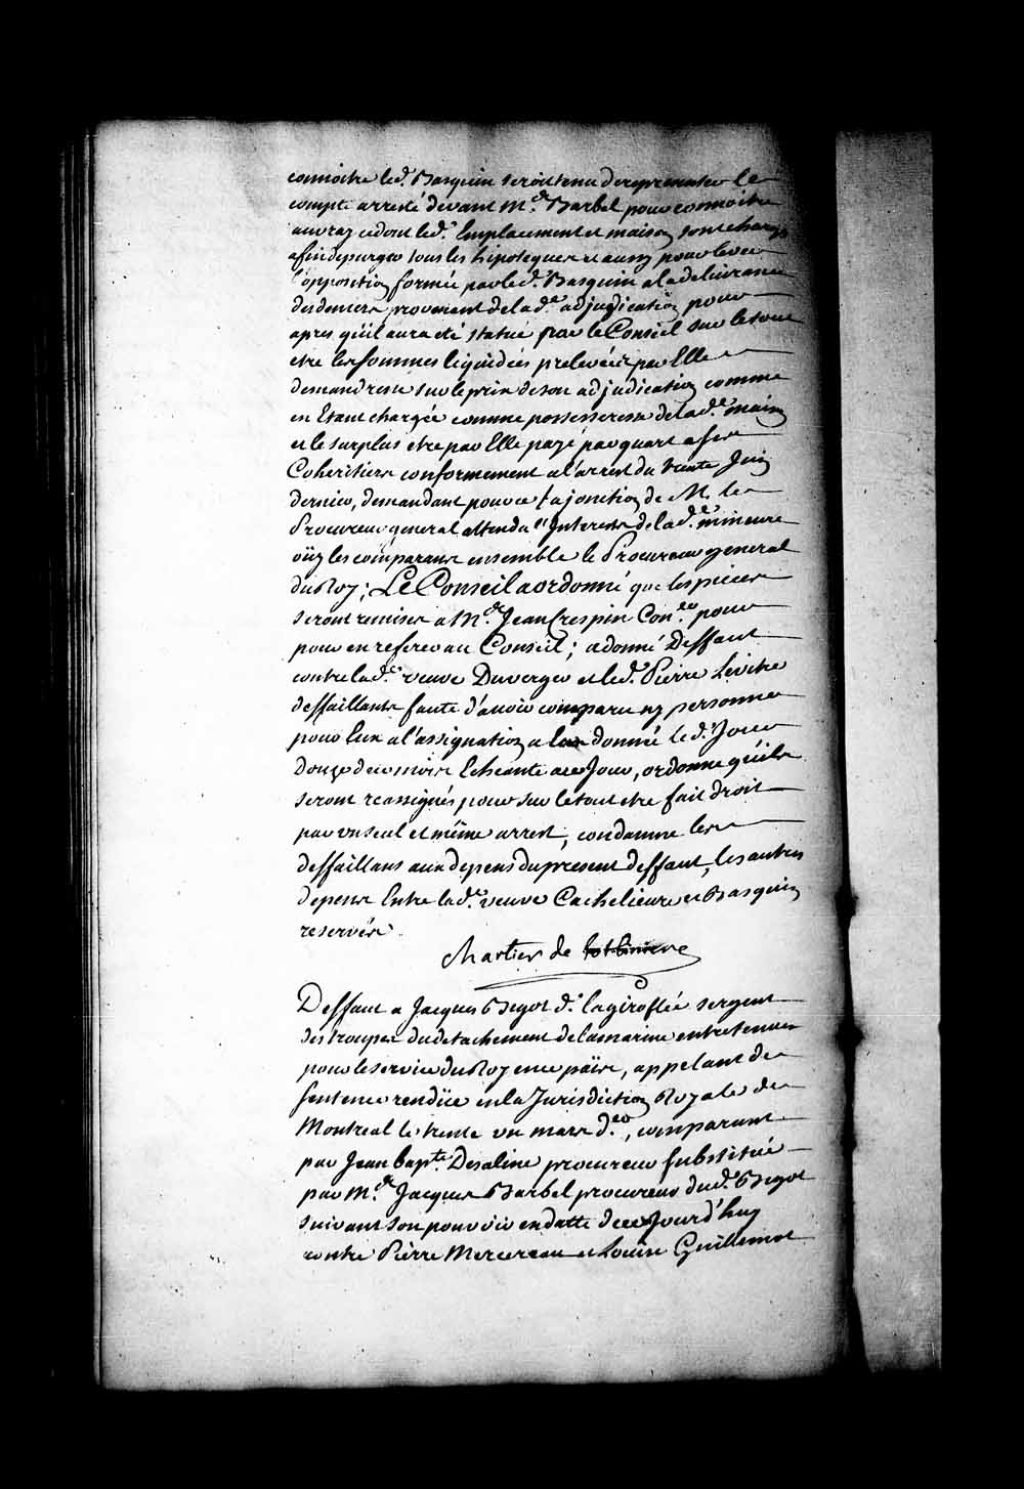 connoitre led.t Basquin seroit tenu de representer le
compte arresté devant M.e Barbel pour connoitre
au vray ce dont led.t Emplacement et maison sont chargé
afin de purger tous les hipoteques et aussy pour lever
l'opposition formée par led.t Basquin a la delivrance
des deniers provenant de lad.e adjudication pour
apres qu'il aura eté statué par le Conseil sur le tout
etre les sommes liquidées prelevées par Elle
demandresse sur le prix de son adjudication comme
en Etant chargée comme possesseresse de lad.e maison
et le surplus etre par Elle payé par quart a ses
Coheritiers conformement a l'arrest du trente Juin
dernier, demandant pour ce la jonction de M. le
Procureur general attendu l'Interest de lad.e mineure
oüy les comparans ensemble le Procureur general
du Roy; Le Conseil a ordonné que les pieces
seront remises a M.e Jean Crespin Con.er pour
pour en referer au Conseil; a donné Deffaut
contre lad.e veuve Duverger et led.t Pierre Levitre
deffaillants faute d'avoir comparu ny personne
pour Eux a l'assignation a Eux donné le d.t Jour
Douze de ce mois Echeante a ce Jour, ordonne qu'ils
seront reassignés pour sur le tout etre fait droit
par un seul et même arrest, condamne les
deffaillans aux depens du present deffaut, les autres
depens Entre lad.e veuve Cachelieure et Basquin
reservés.
Chartier de Lotbiniere
Deffaut a Jacques Begot d.t Lagiroflée sergent
des troupes du detachement de la marine entretenues
pour le service du Roy en ce païs, appelant de
sentence rendüe en la Jurisdiction Royale de
Montreal le trente un mars d.er, comparant
par Jean bap.te Desaline procureur substitué
par M.e Jacques Barbel procureur dud.t Begot
suivant son pouvoir en datte de ce jourd'huy
contre Pierre Mercereau et Louise Guillemot